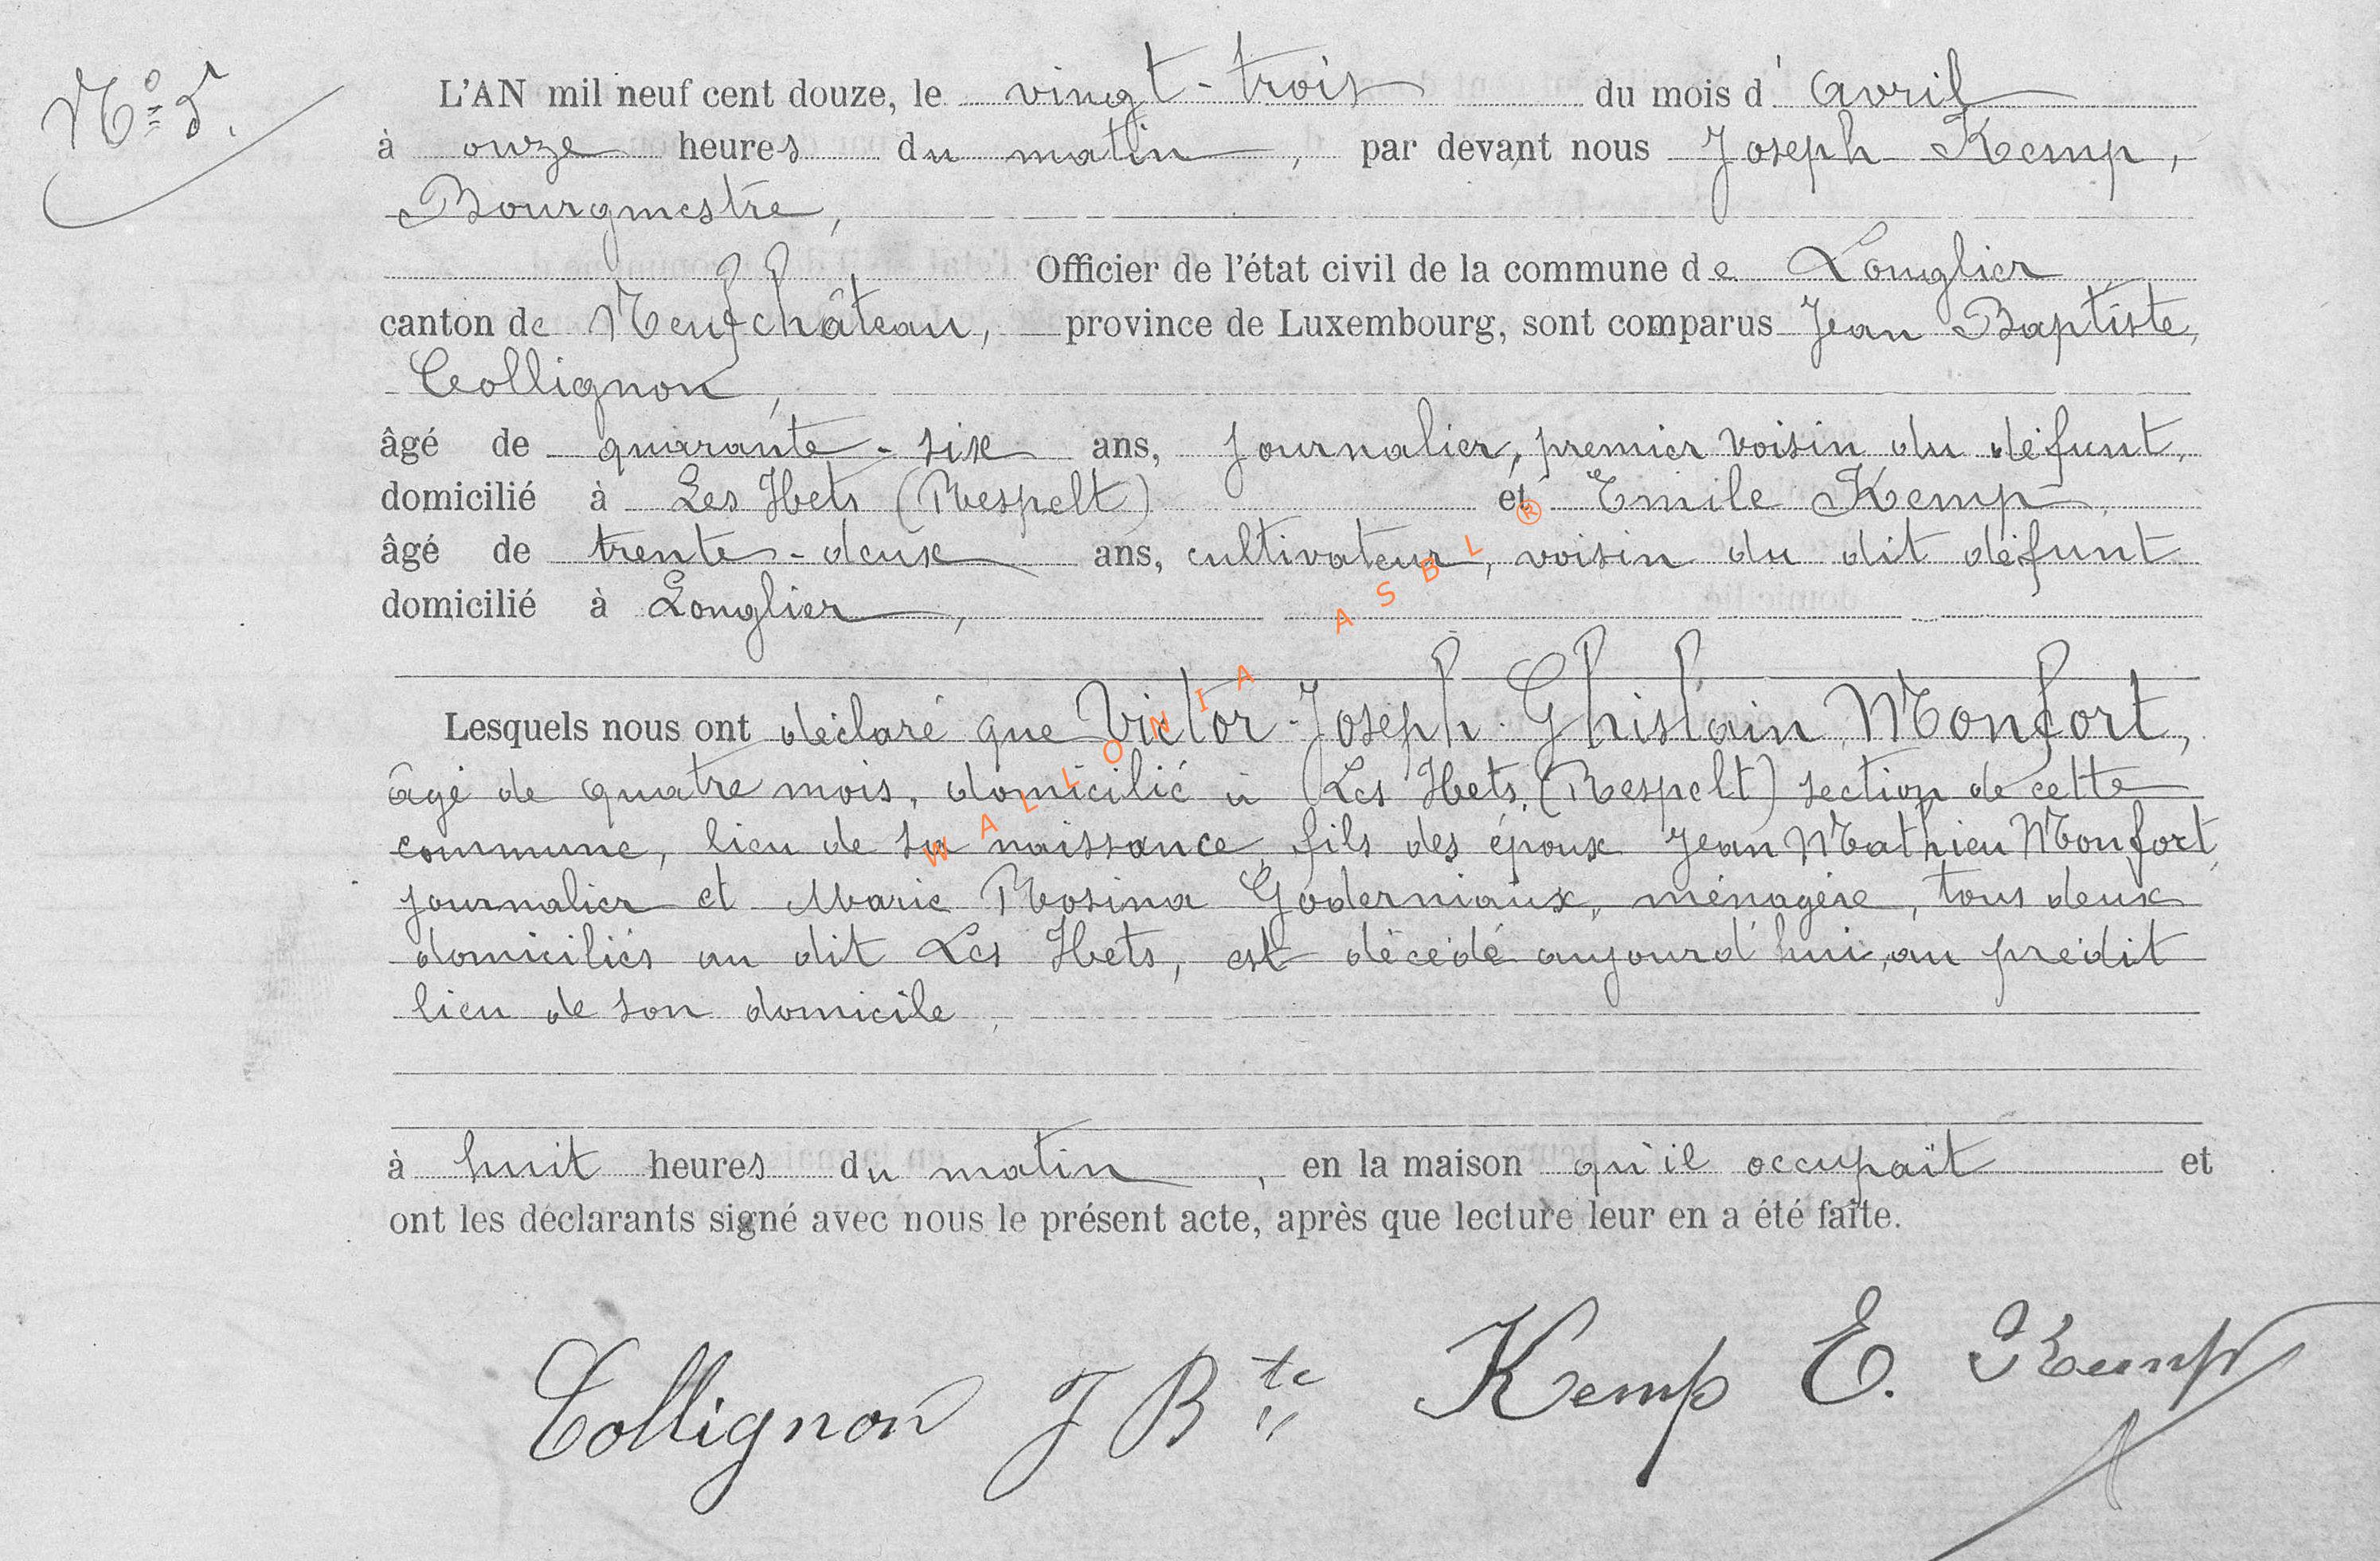 N° 5.
L'AN mil neuf cent douze, le vingt-trois du mois d'avril
à onze heures du matin, par devant nous Joseph Kemp,
Bourgmestre,
Officier de l'état civil de la commune de Longlier
canton de Neufchâteau, province de Luxembourg, sont comparus Jean Baptiste,
Collignon,
âgé de quarante-six ans, journalier, premier voisin du défunt,
domicilié à Les Hets (Respelt) et Emile Kemp,
âgé de trente-deux ans, cultivateur, voisin du dit défunt
domicilié à Longlier,
Lesquels nous ont déclaré que Victor-Joseph-Ghislain Monfort,
âgé de quatre mois, domicilié à Les Hets, (Respelt) section de cette
commune, lieu de sa naissance, fils des époux Jean Mathieu Monfort,
journalier et Marie Rosina Goderniaux, ménagère, tous deux
domiciliés au dit Les Hets, est décédé aujourd'hui, au prédit
lieu de son domicile,
à huit heures du matin, en la maison qu'il occupait et
ont les déclarants signé avec nous le présent acte, après que lecture leur en a été faite.
Collignon J Bte Kemp E. Kemp
WALLONIA ASBL ®